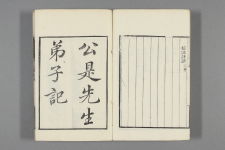 公是先生
弟子記